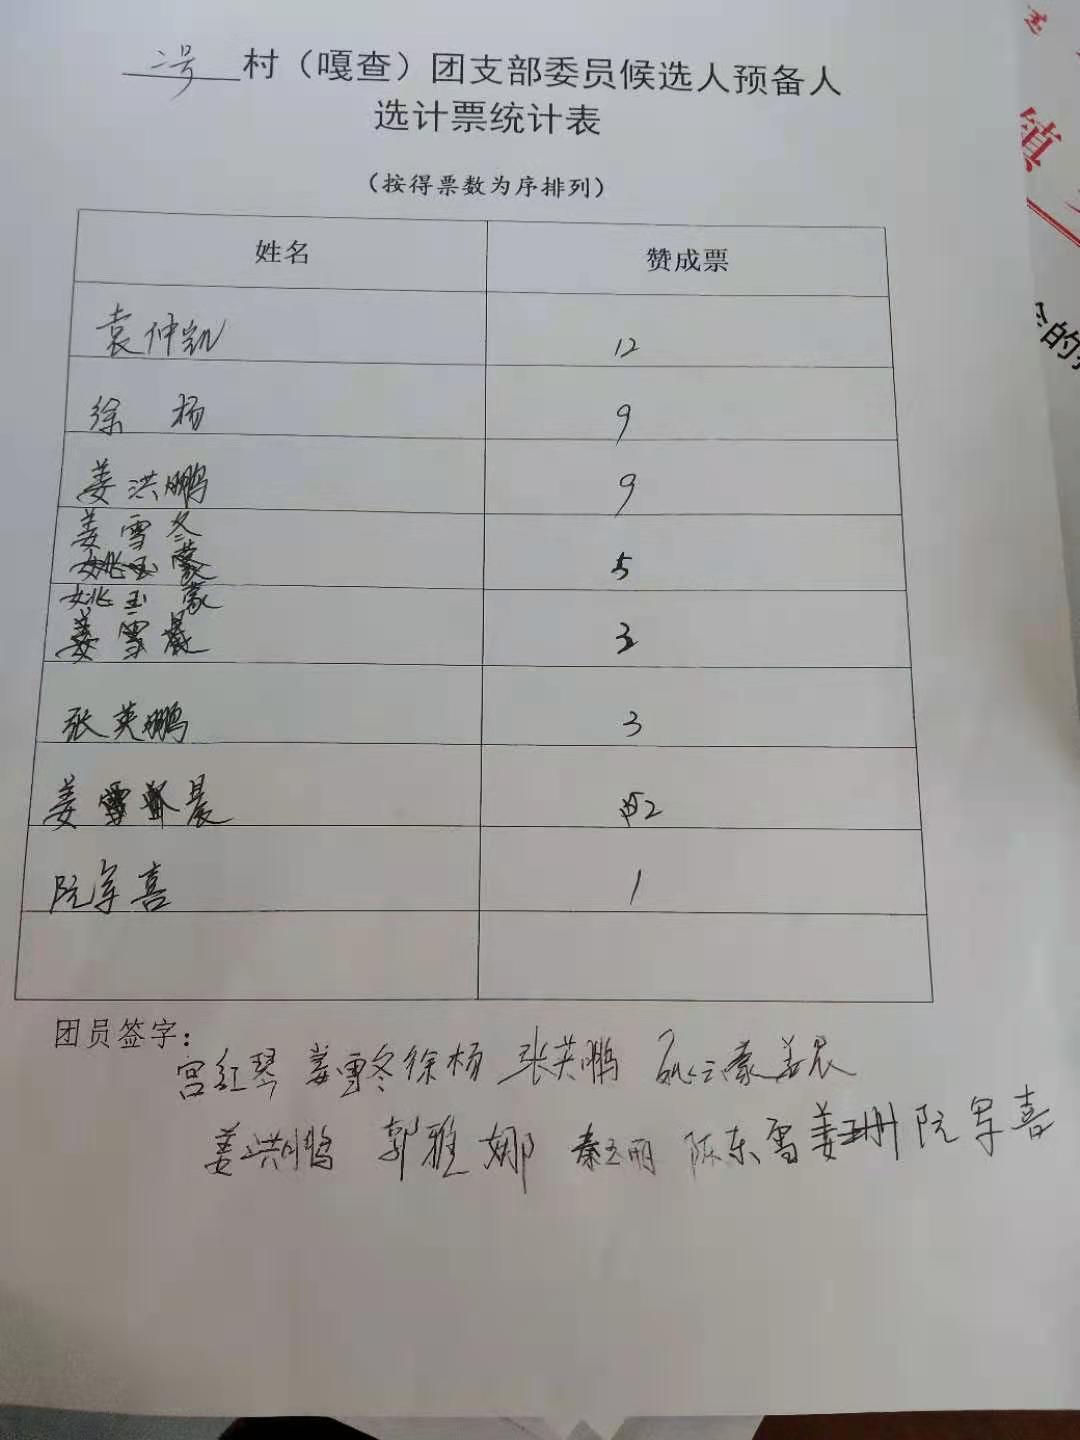 二号村（嘎查）团支部委员候选人预备人
选计票统计表
（按得票数为序排列）
姓名 赞成票
袁仲凯 12
徐杨 9
姜洪鹏 9
姜雪冬
姚玉蒙 5
姚玉蒙
姜雪晨 3
张英鹏 3
姜晨 2
阮军喜 1
团员签字：
宫红琴 姜雪冬 徐杨 张英鹏 姜晨
姜洪鹏 郭雅娜 秦玉丽 陈东雪 姜珊 阮军喜
镇
的